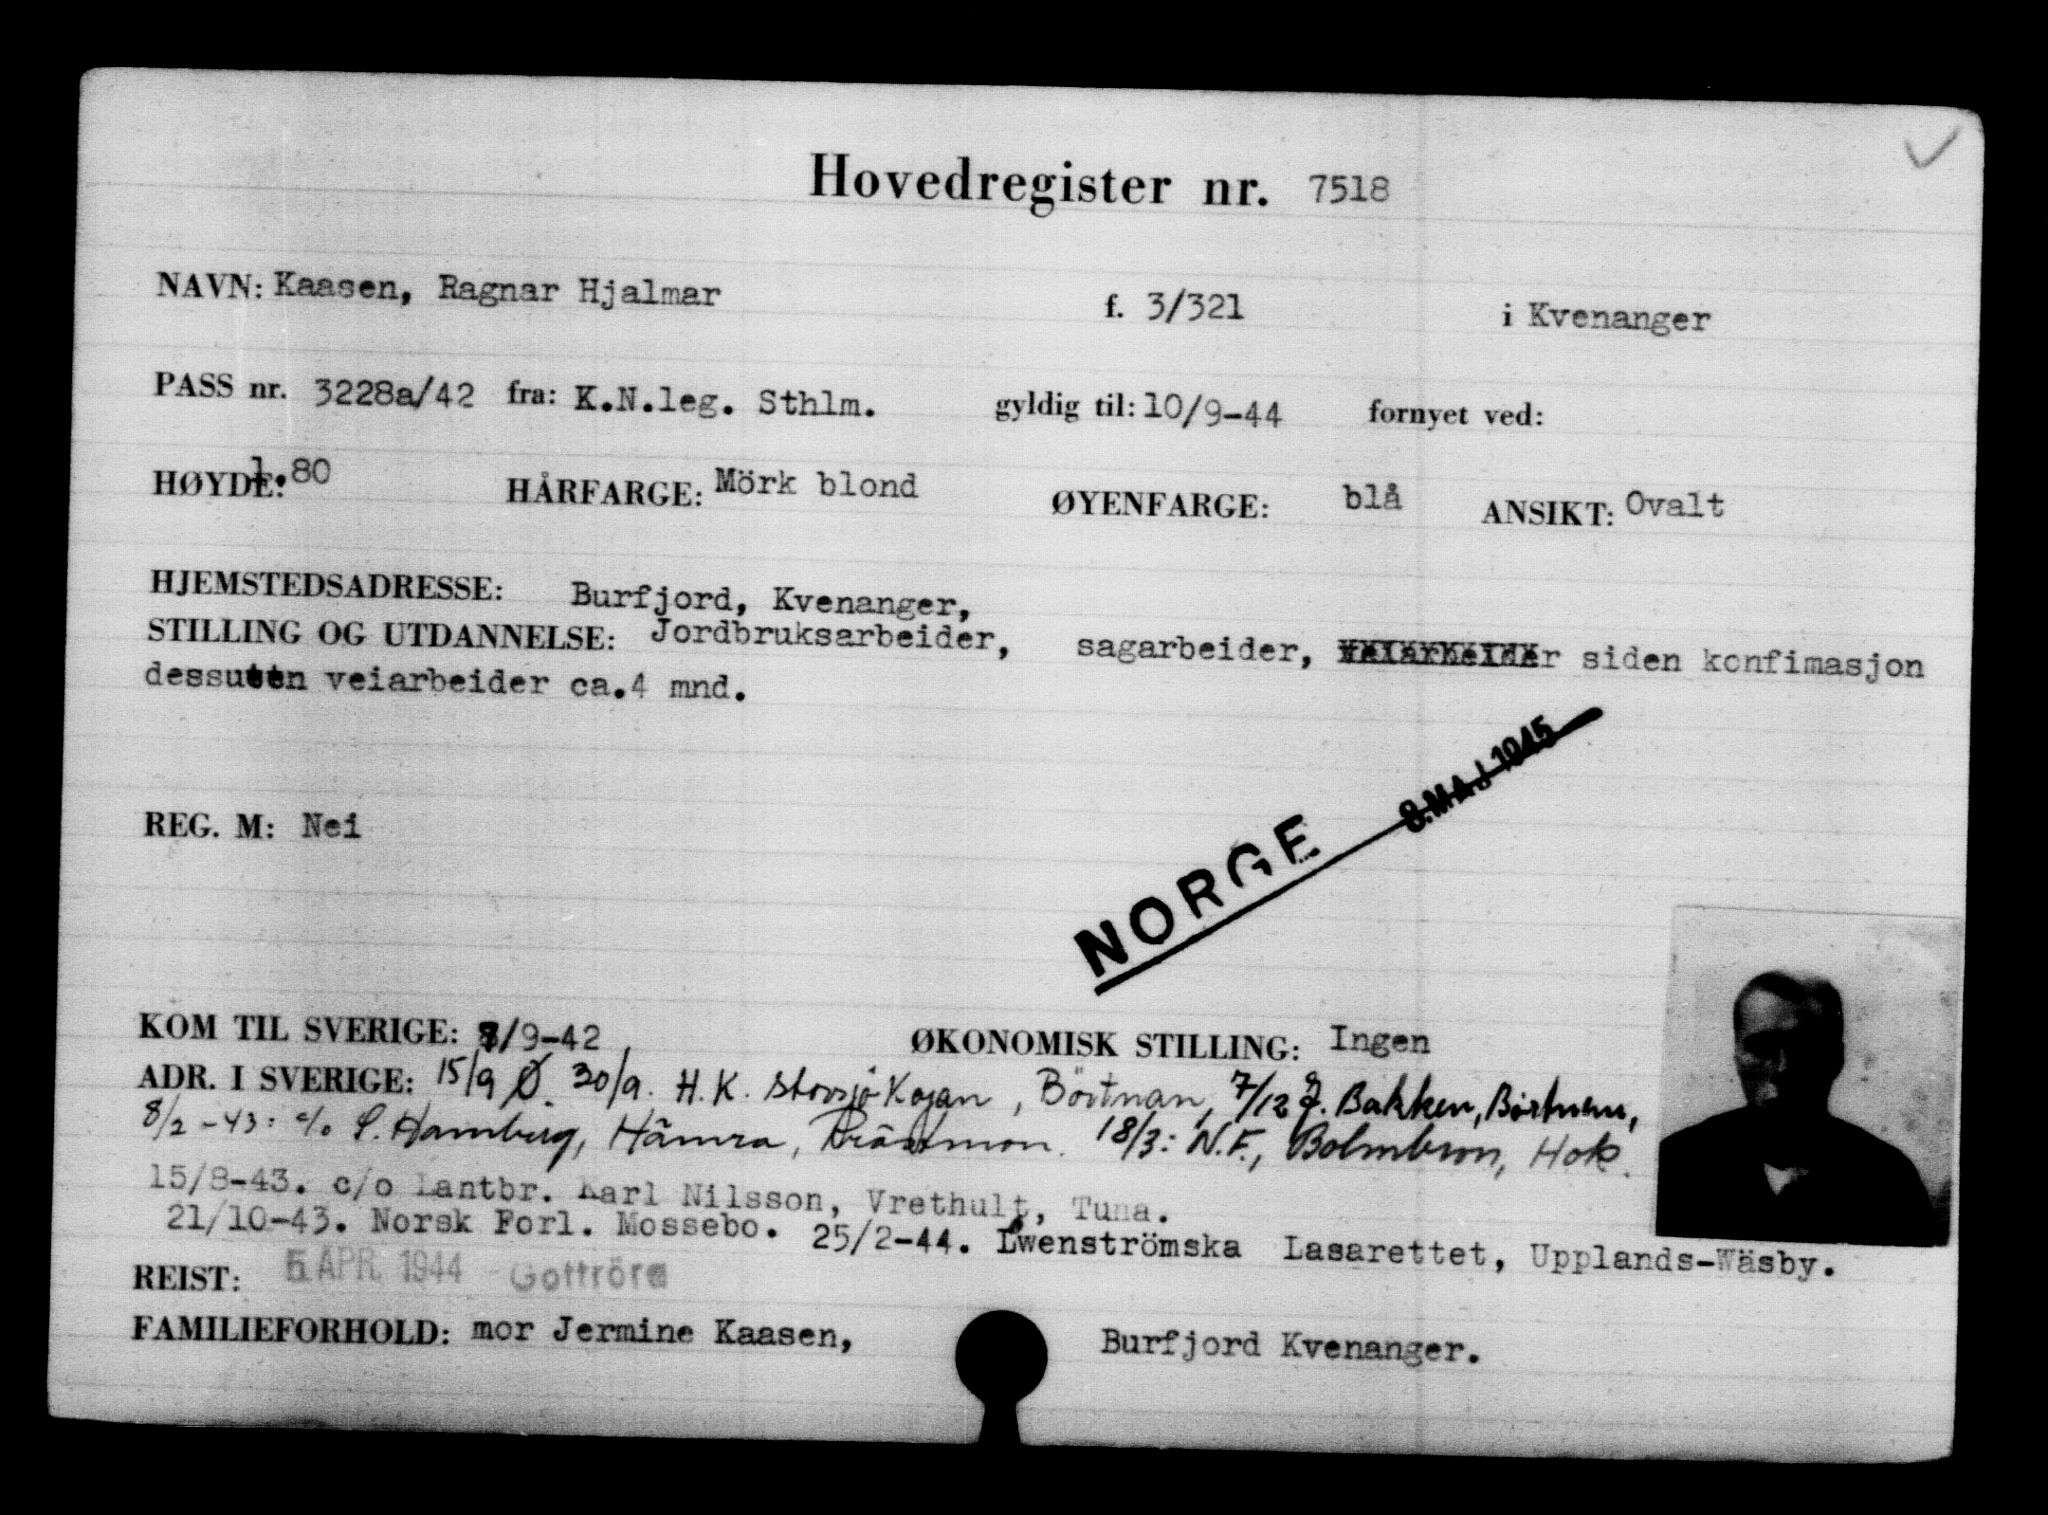 Hovedregister nr. 7518
NAVN: Kaasen, Ragnar Hjalmar f. 3/321 i Kvenanger
PASS nr. 3228a/42 fra: K.N.leg. Sthlm. gyldig til: 10/9-44 fornyet ved:
HØYDE: 1.80 HÅRFARGE: Mörk blond ØYENFARGE: blå ANSIKT: Ovalt
HJEMSTEDSADRESSE: Burfjord, Kvenanger,
STILLING OG UTDANNELSE: Jordbruksarbeider, sagarbeider, veiarbeider siden konfimasjon
dessuten veiarbeider ca.4 mnd.
NORGE 8.MAJ 1945
REG. M: Nei
KOM TIL SVERIGE: /9-42 ØKONOMISK STILLING: Ingen
ADR. I SVERIGE: 15/9 Ø. 30/9. H.K. Storsjö Kojan, Börtnan, 7/12 J. Bakken, Börtnan,
8/2-43: c/o S. Hamberg, Håmra, 18/3: N.F., Holmbron, Hok.
15/8-43. c/o Lantbr. Karl Nilsson, Vrethult, Tuna.
21/10-43. Norsk Forl. Mossebo. 25/2-44. Lwenströmska Lasarettet, Upplands-Wäsby.
REIST: 5 APR. 1944 Gottröra
FAMILIEFORHOLD: mor Jermine Kaasen, Burfjord Kvenanger.